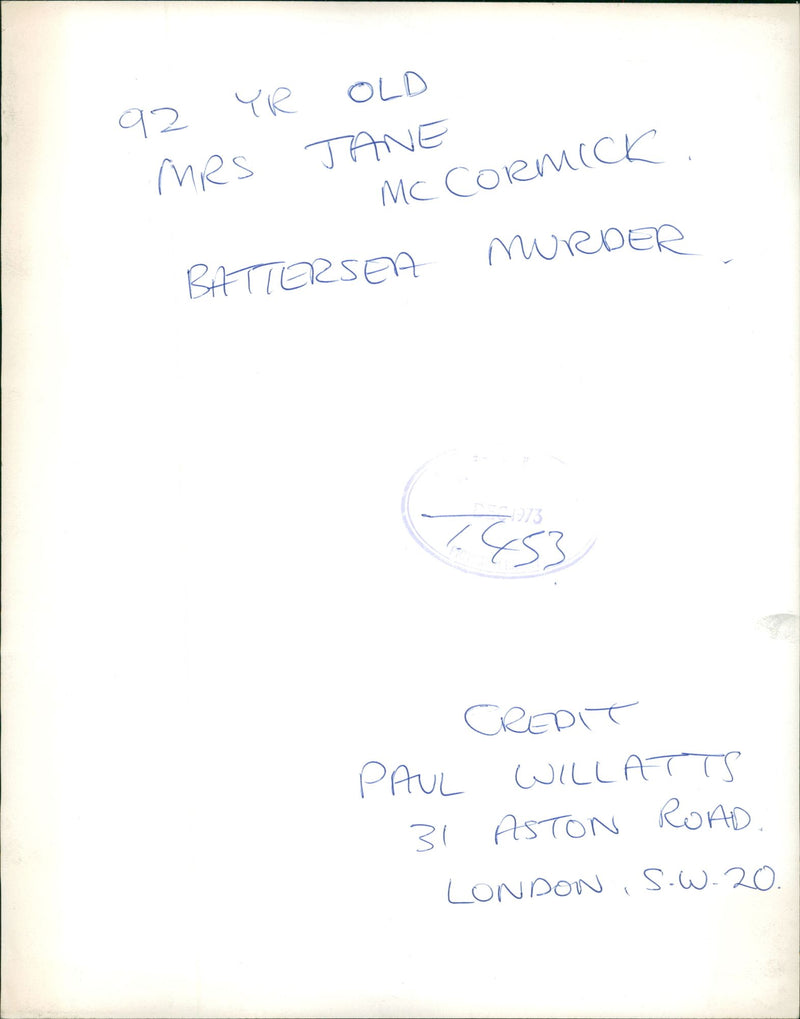 92 YR OLD
MRS JANE
MCCORMICK.
BATTERSEA MURDER.
1973
1453
CREDIT
PAUL WILLATTS
31 ASTON ROAD.
LONDON, S.W.20.